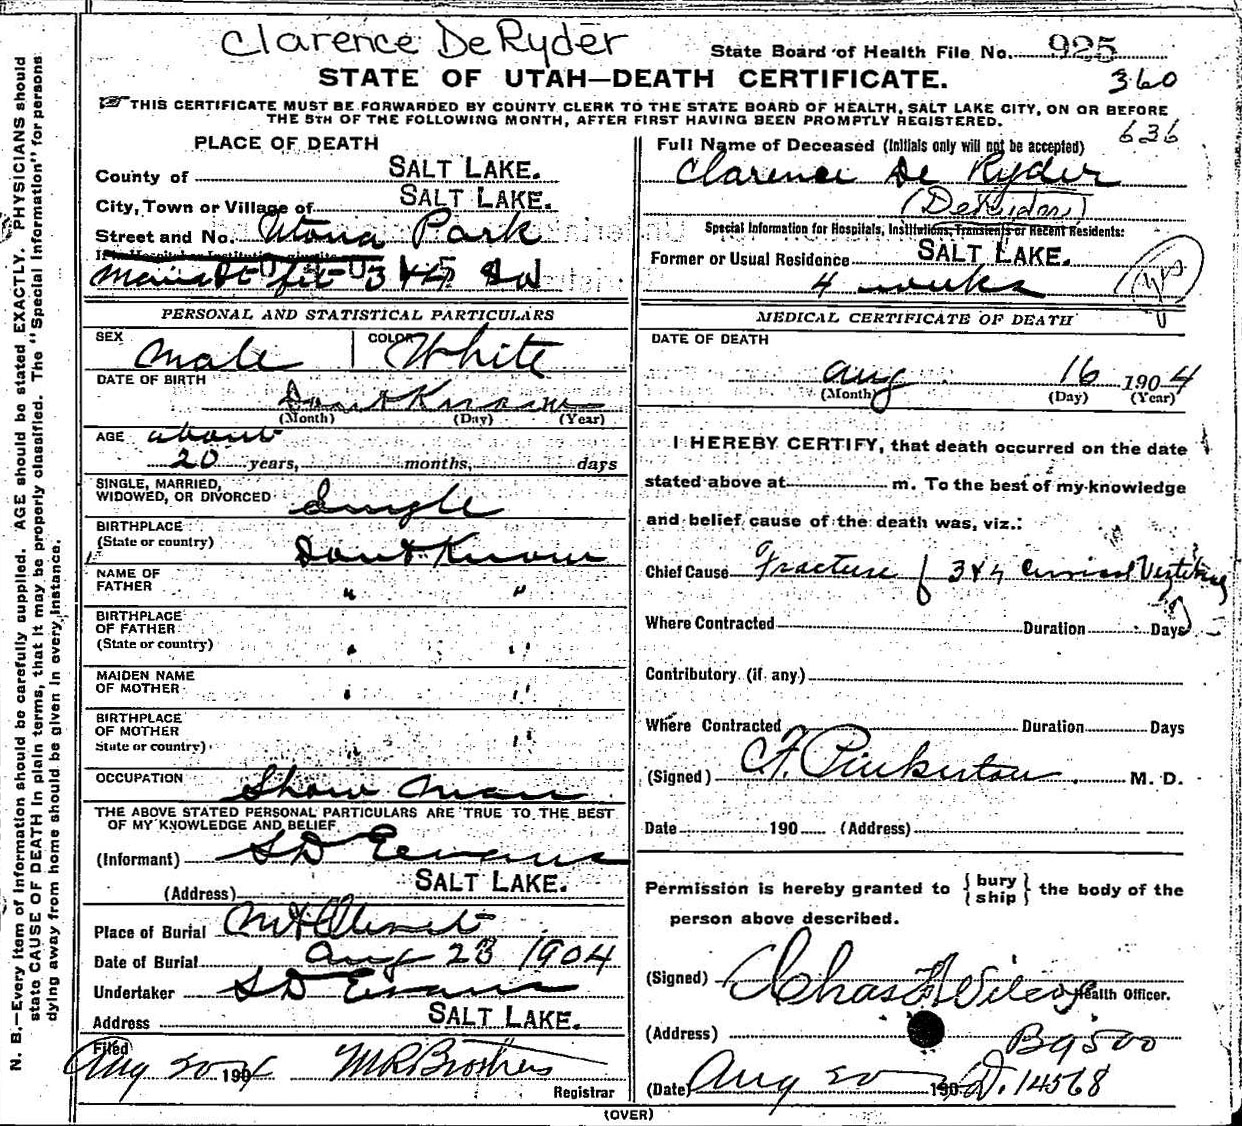 Clarence DeRyder
State Board of Health File No. 925
STATE OF UTAH—DEATH CERTIFICATE.
360
THIS CERTIFICATE MUST BE FORWARDED BY COUNTY CLERK TO THE STATE BOARD OF HEALTH, SALT LAKE CITY, ON OR BEFORE
THE 5TH OF THE FOLLOWING MONTH, AFTER FIRST HAVING BEEN PROMPTLY REGISTERED.
636
N. B.—Every item of information should be carefully supplied. AGE should be stated EXACTLY. PHYSICIANS should
state CAUSE OF DEATH in plain terms, that it may be properly classified. The "Special Information" for persons
dying away from home should be given in every instance.
PLACE OF DEATH
County of SALT LAKE.
City, Town or Village of SALT LAKE.
Street and No. Utona Park
PERSONAL AND STATISTICAL PARTICULARS
SEX Male COLOR White
DATE OF BIRTH Dont Know
(Month) (Day) (Year)
AGE about
20 years, months, days
SINGLE, MARRIED,
WIDOWED, OR DIVORCED Single
BIRTHPLACE
(State or country) Dont Know
NAME OF
FATHER " "
BIRTHPLACE
OF FATHER
(State or country) " "
MAIDEN NAME
OF MOTHER " "
BIRTHPLACE
OF MOTHER
State or country) " "
OCCUPATION Show man
THE ABOVE STATED PERSONAL PARTICULARS ARE TRUE TO THE BEST
OF MY KNOWLEDGE AND BELIEF
(Informant) S D Evans
(Address) SALT LAKE.
Place of Burial Mt Olivet
Date of Burial Aug 23 1904
Undertaker S D Evans
Address SALT LAKE.
Filed
Aug 20 1904
Registrar
Full Name of Deceased (Initials only will not be accepted)
Clarence De Ryder
(DeRidar)
Special Information for Hospitals, Institutions, Transients or Recent Residents:
Former or Usual Residence SALT LAKE.
4 weeks
MEDICAL CERTIFICATE OF DEATH
DATE OF DEATH
Aug 16 1904
(Month) (Day) (Year)
I HEREBY CERTIFY, that death occurred on the date
stated above at m. To the best of my knowledge
and belief cause of the death was, viz.:
Chief Cause Fracture of 3 & 4 Cervical
Where Contracted Duration Days
Contributory (if any)
Where Contracted Duration Days
(Signed) F. Pinkerton M. D.
Date 190 (Address)
Permission is hereby granted to { bury ship } the body of the
person above described.
(Signed) Chas Wilcox Health Officer.
(Address) B9500
(Date) Aug 20 190 D.14568
(OVER)